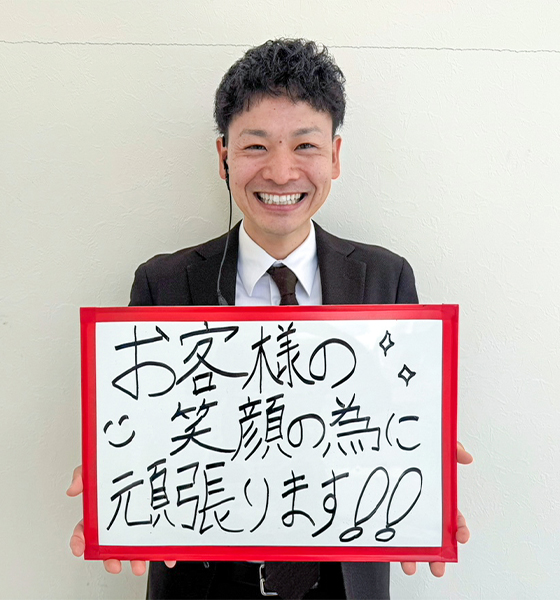 お客様の
笑顔の為に
頑張ります!!